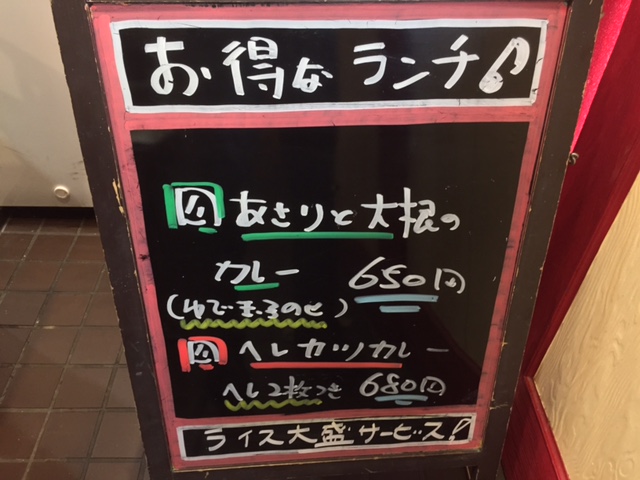 お得なランチ♪
㋑ あさりと大根の
カレー 650円
(ゆでまるのせ)
㋺ ヘレカツカレー
ヘレ2枚つき 680円
ライス大盛サービス!